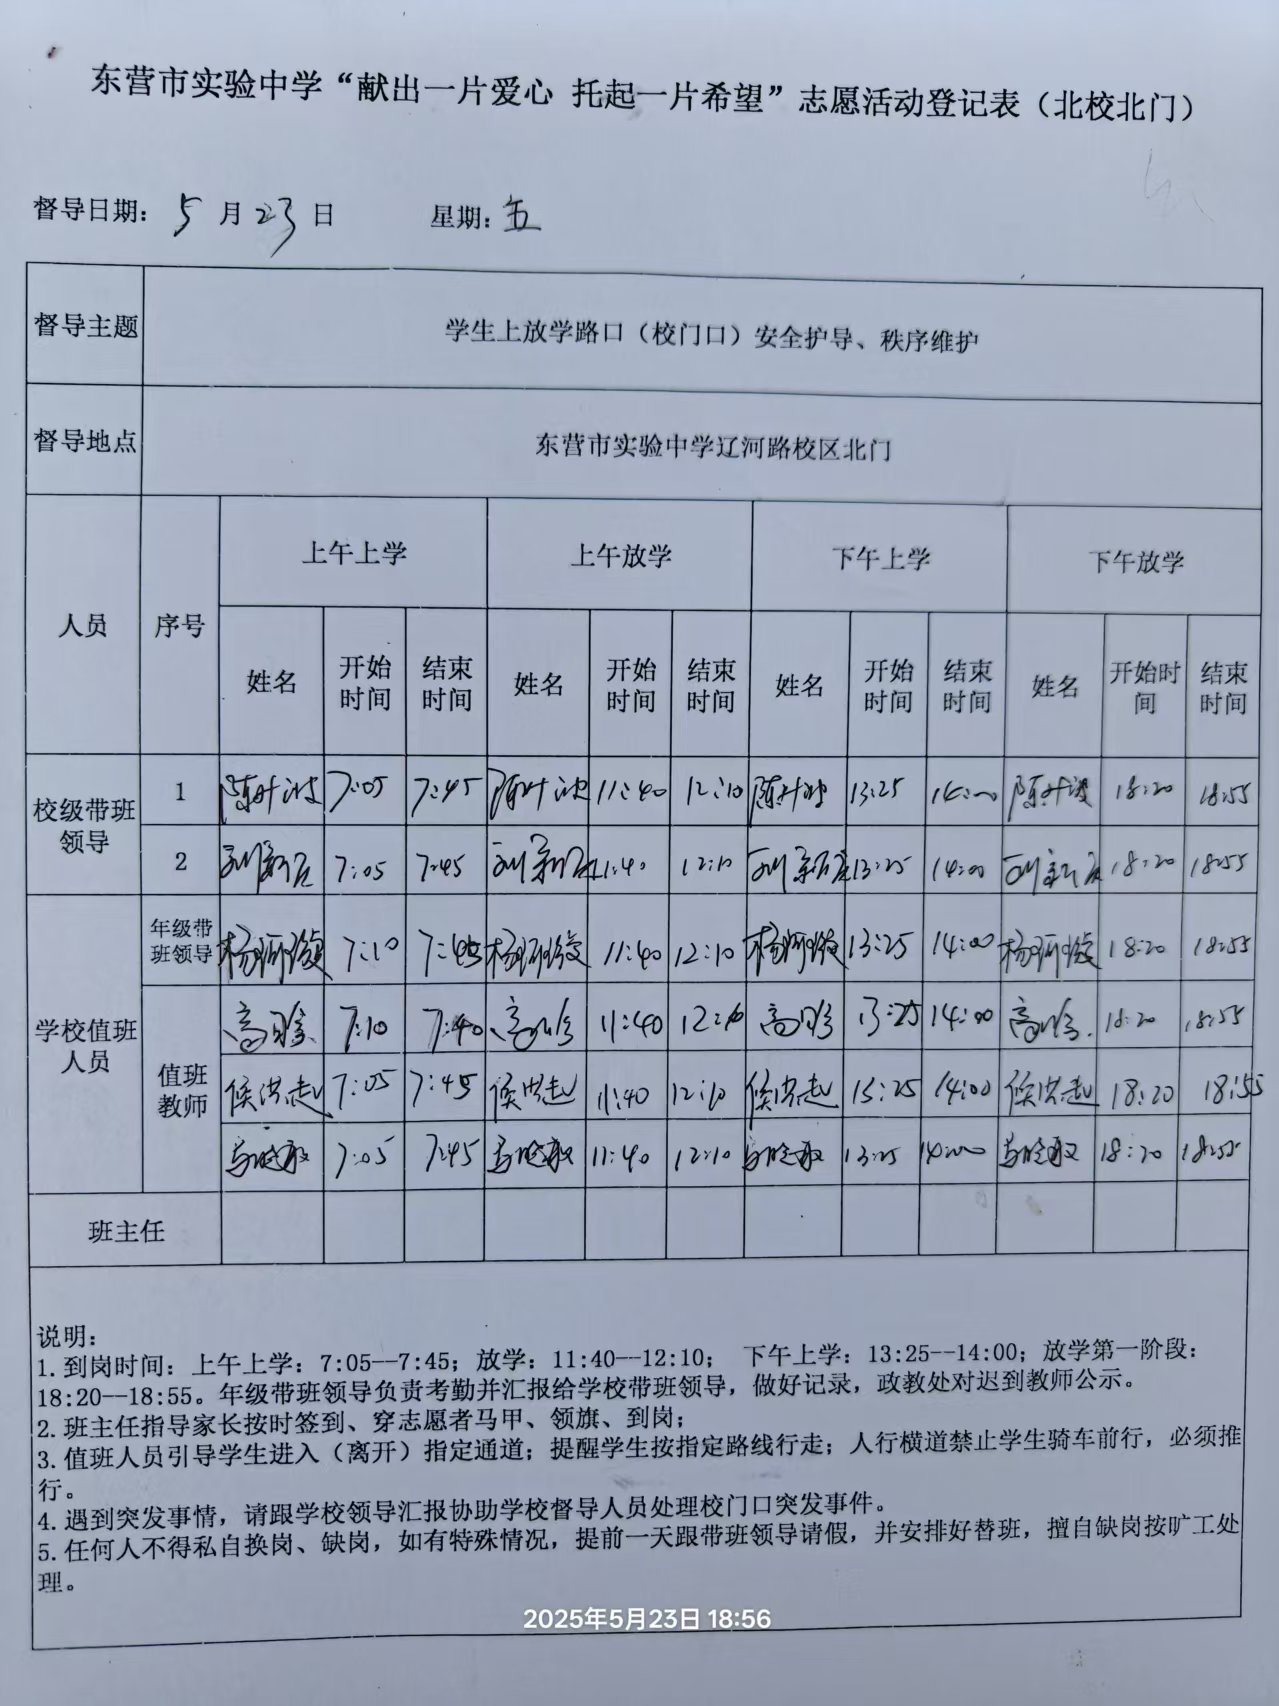 东营市实验中学“献出一片爱心 托起一片希望”志愿活动登记表（北校北门）
督导日期： 5 月 23 日 星期：五
督导主题 学生上放学路口（校门口）安全护导、秩序维护
督导地点 东营市实验中学辽河路校区北门
人员 序号 上午上学 上午放学 下午上学 下午放学
姓名 开始时间 结束时间 姓名 开始时间 结束时间 姓名 开始时间 结束时间 姓名 开始时间 结束时间
校级带班领导 1 7:05 7:45 11:40 12:10 13:25 14:00 18:20 18:55
2 7:05 7:45 11:40 12:10 13:25 14:00 18:20 18:55
学校值班人员 年级带班领导 7:10 7:45 11:40 12:10 13:25 14:00 18:20 18:55
值班教师 7:10 7:40 11:40 12:10 13:25 14:00 18:20 18:55
侯洪起 7:05 7:45 侯洪起 11:40 12:10 侯洪起 13:25 14:00 侯洪起 18:20 18:55
7:05 7:45 11:40 12:10 13:25 14:00 18:20 18:55
班主任
说明：
1.到岗时间：上午上学：7:05--7:45；放学：11:40--12:10； 下午上学：13:25--14:00；放学第一阶段：
18:20--18:55。年级带班领导负责考勤并汇报给学校带班领导，做好记录，政教处对迟到教师公示。
2.班主任指导家长按时签到、穿志愿者马甲、领旗、到岗；
3.值班人员引导学生进入（离开）指定通道；提醒学生按指定路线行走；人行横道禁止学生骑车前行，必须推
行。
4.遇到突发事情，请跟学校领导汇报协助学校督导人员处理校门口突发事件。
5.任何人不得私自换岗、缺岗，如有特殊情况，提前一天跟带班领导请假，并安排好替班，擅自缺岗按旷工处
理。
2025年5月23日 18:56